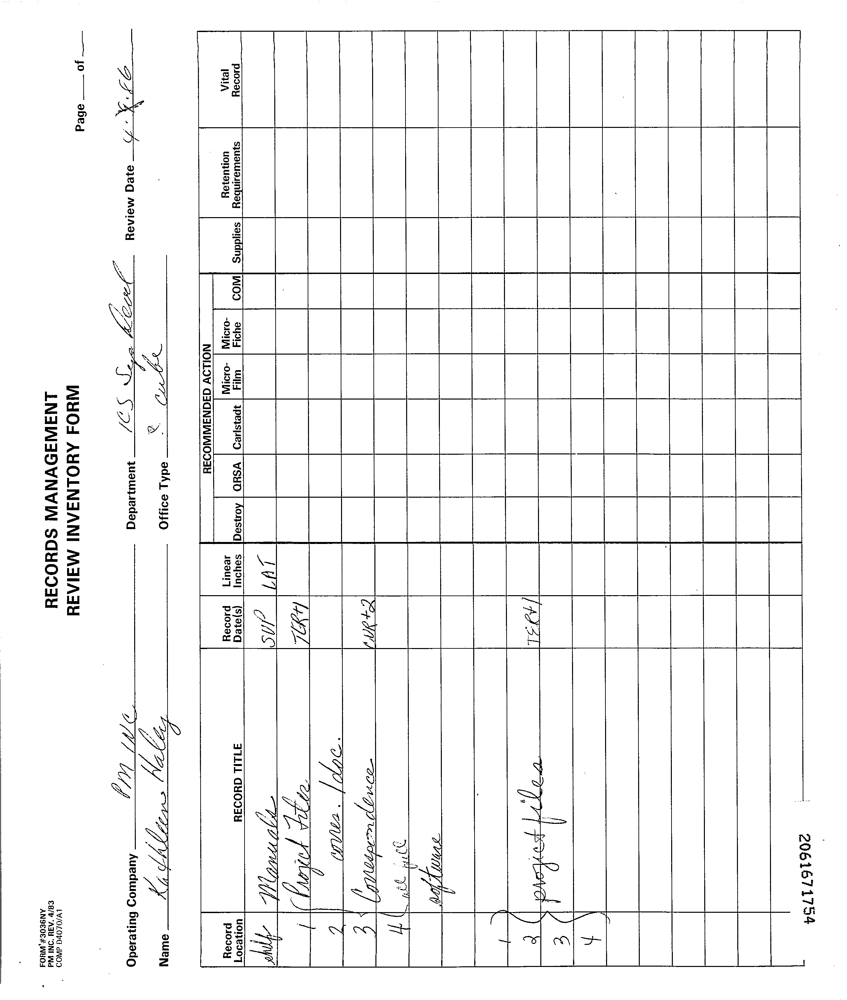 FORM #3036NY
PM INC. REV. 4/83
COMP D4070/A1
RECORDS MANAGEMENT
REVIEW INVENTORY FORM
Page ___ of ___
Operating Company PM INC. Department ICS Sys Devel Review Date 4.8.86
Name Kathleen Haley Office Type cube
RECOMMENDED ACTION
Record Location RECORD TITLE Record Date(s) Linear Inches Destroy QRSA Carlstadt Micro-Film Micro-Fiche COM Supplies Retention Requirements Vital Record
shelf Manuals SUP LAT
1 Project Files TER+1
2 corres. / doc.
3 Correspondence CUR+2
4
software
1
2 project files TER+1
3
4
2061671754